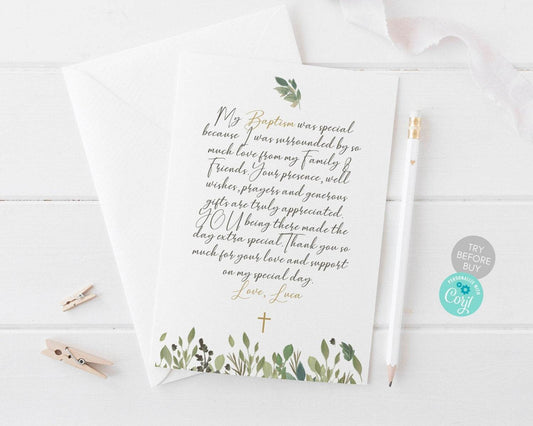 My Baptism was special
because I was surrounded by so
much love from my Family &
Friends. Your presence, well
wishes, prayers and generous
gifts are truly appreciated.
YOU being there made the
day extra special. Thank you so
much for your love and support
on my special day.
Love, Luca
TRY
BEFORE
BUY
PERSONALIZE WITH
Corjl